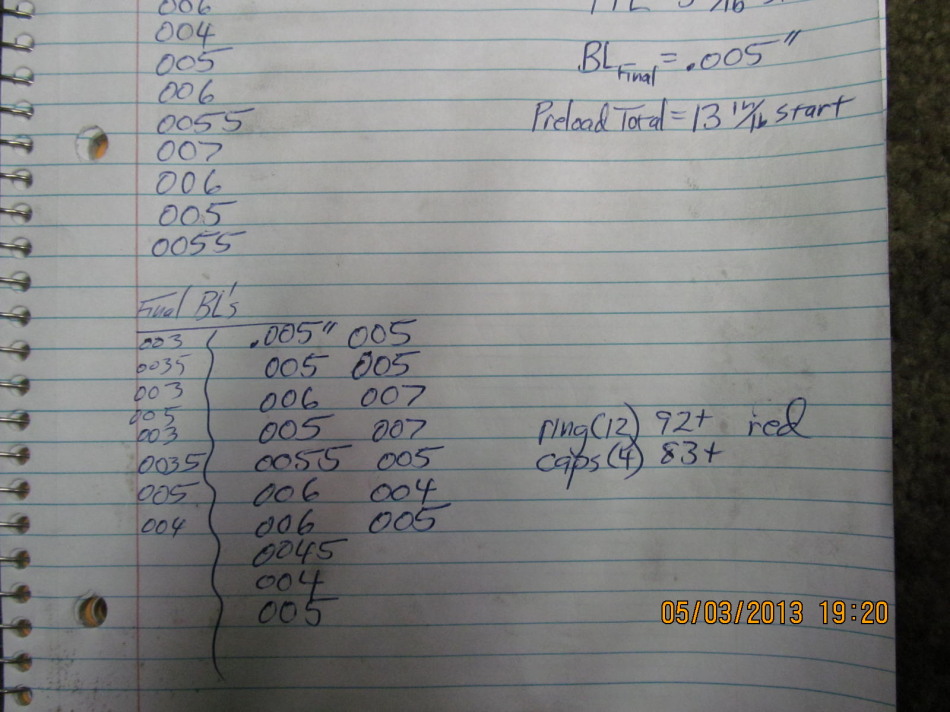 006
004
005
006
0055
007
006
005
0055
BL Final = .005"
Preload Total = 13 in/lb start
Final BL's
003 .005" 005
0035 005 005
003 006 007
005 005 007
003
0035 0055 005
005 006 004
004 006 005
0045
004
005
ring(12) 92+ red
caps(4) 83+
05/03/2013 19:20